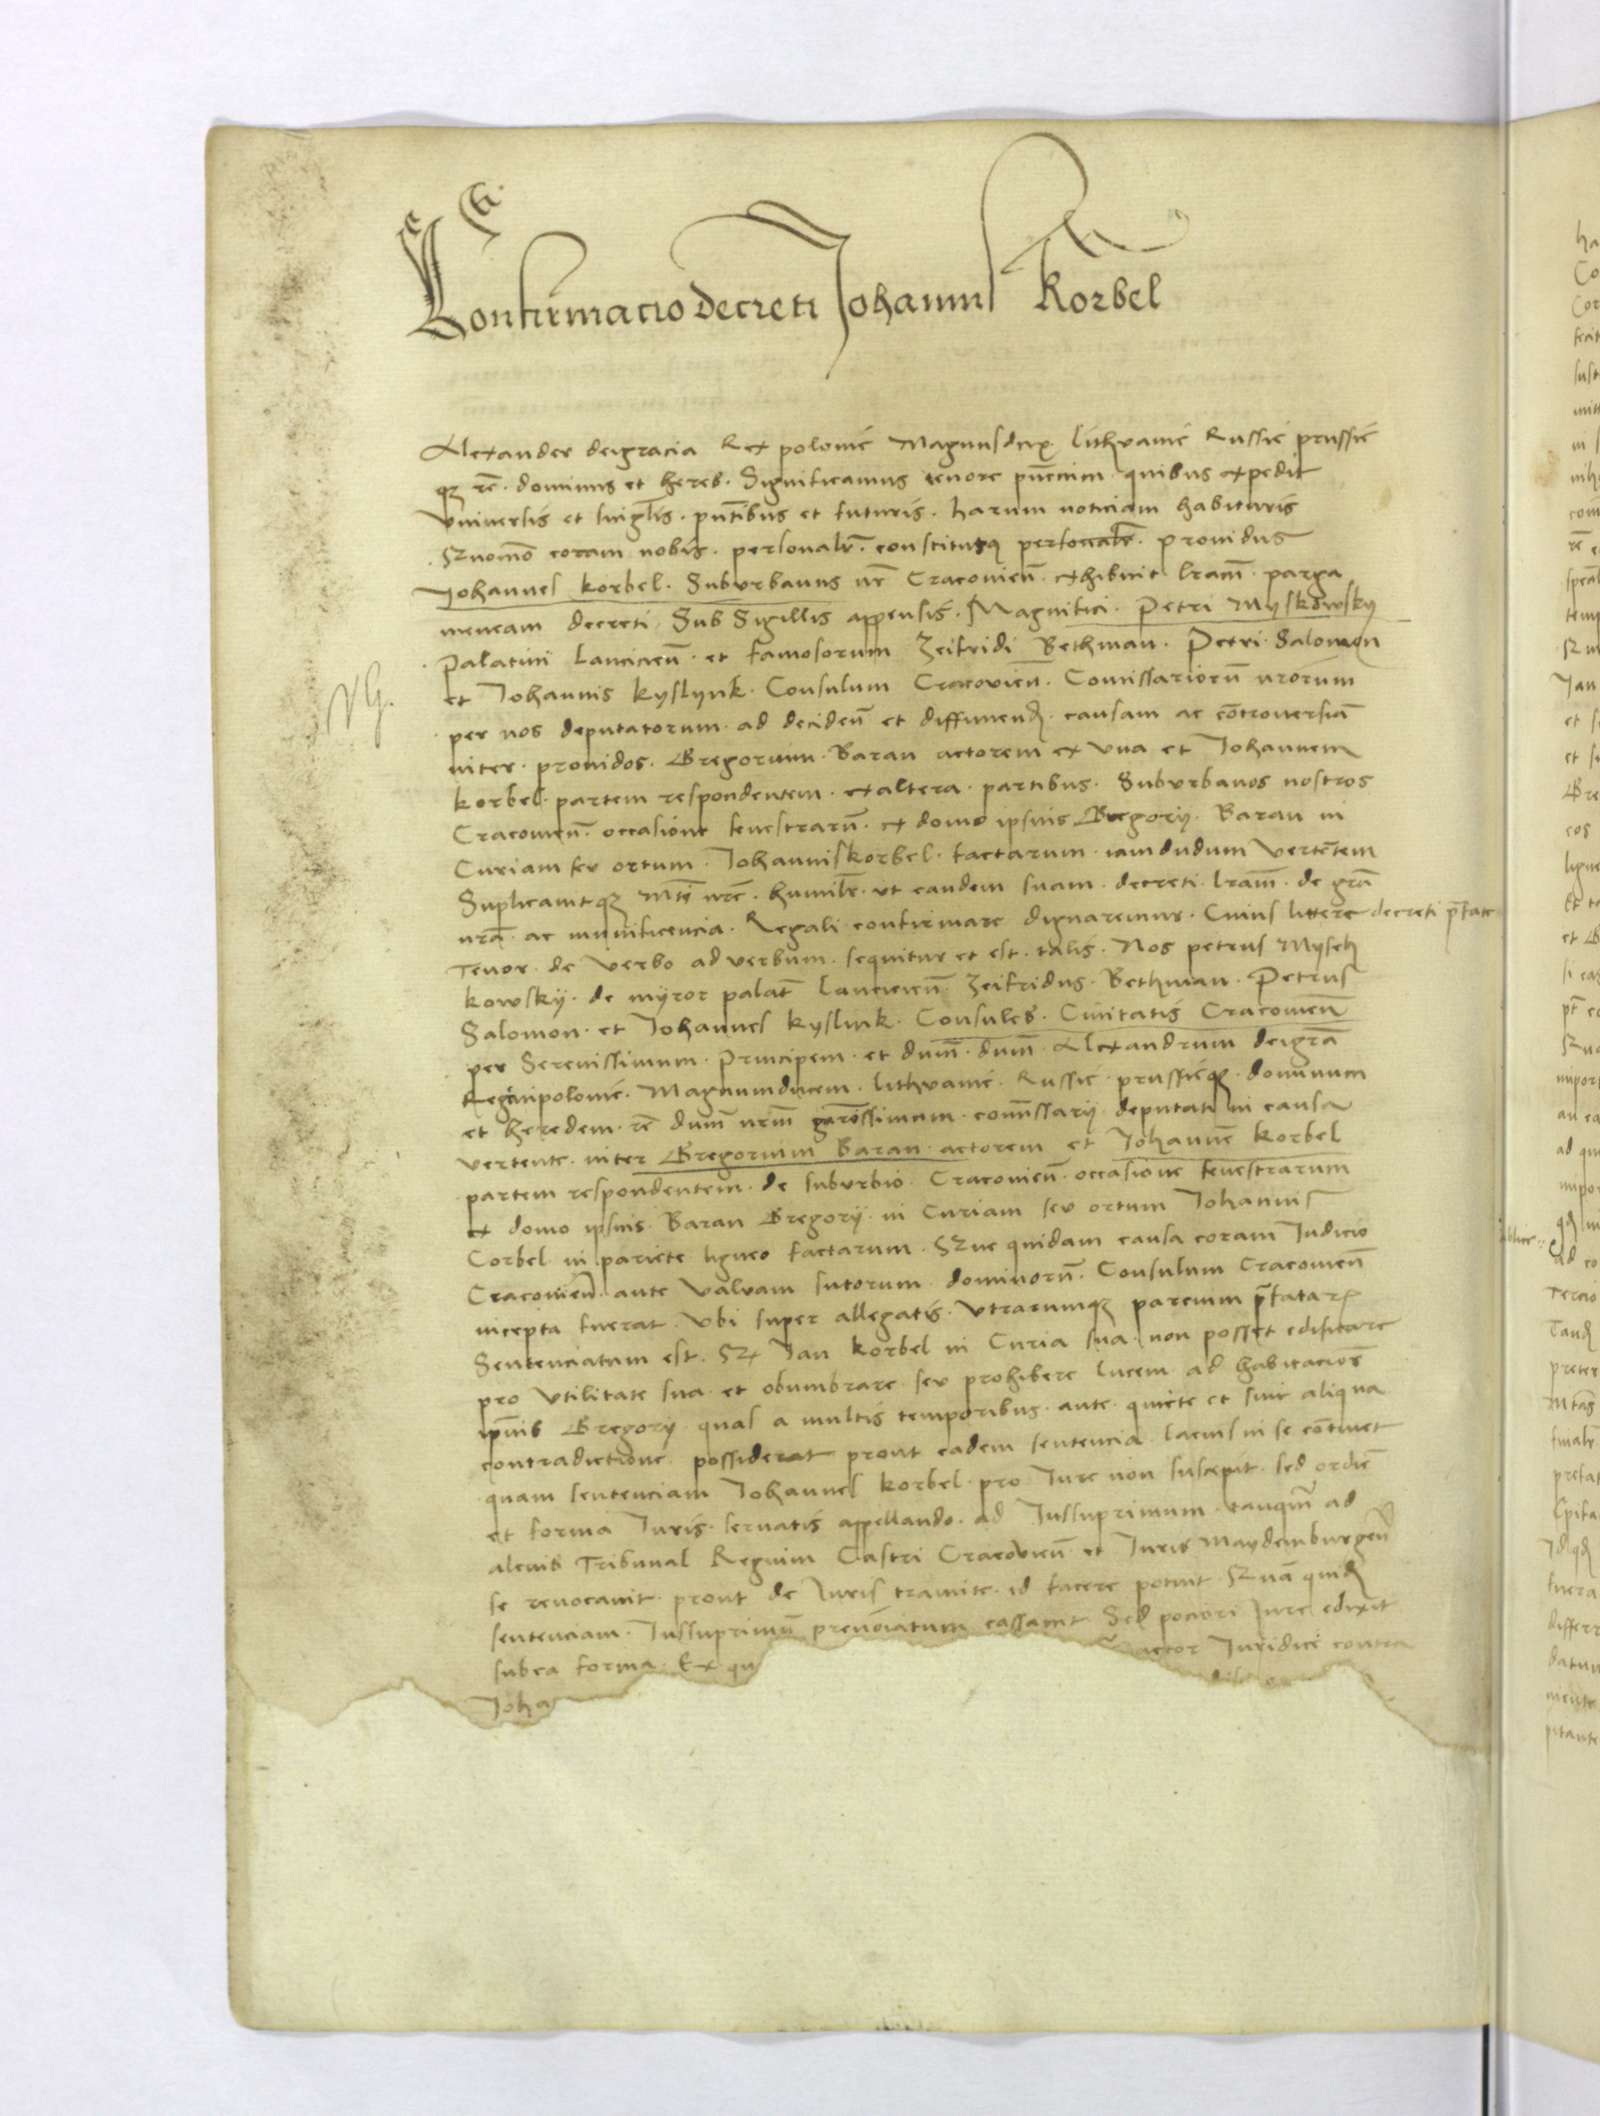 Confirmacio decreti Johannis Korbel
Alexander deigracia Rex polonie Magnusdux lithvanie Russie prussie
qz rē. dominus et heres. Significamus tenore pn̄cium quibus expedit
vniversis et singl̄is. pn̄tibus et futuris. harum noticiam habituris
Quomō coram nobis. personalr̄. constitutus personalr̄. prouidus
Johannes korbel. Suburbanus nr̄ Cracovien̄. exhibuit lr̄am. parga
meneam decreti. Sub Sigillis appensis. Magnifici. Petri Myskowsky
Palatini Lancicien̄. et famosorum Zeifridi Bethman. Petri Salomon
et Johannis kyslynk. Consulum Cracovien̄. Comissariorū nrōrum
VG.
per nos deputatorum. ad deciden̄ et diffiniend. causam ac cōtrouersiā
inter. prouidos. Gregorium. Baran actorem ex vna et Johannem
korbel. partem respondentem. exaltera. partibus. Suburbanos nostros
Cracouien̄. occasione fenestrarū. ex domo ipsius Gregorij. Baran in
Curiam seu ortum. Johanniskorbel. factarum. iamdudum vertētem
Suplicauitqz Mti nrē. humilr̄. vt eandem suam. decreti. lr̄am. de grā
nrā. ac munificencia. Regali confirmare dignaremur. Cuius littere decreti pr̄fate
Tenor. de verbo adverbum. sequitur et est. talis. Nos petrus Mysch
kowskÿ. de mÿror palat̄ Lancicien̄. Zeifridus. Bethman. Petrus
Salomon. et Johannes kyslink. Consules. Ciuitatis Cracouien̄
per Serenissimum. Principem. et dum̄. dum̄. Alexandrum deigrā
Regēmpolonie. Magnumducem. lithvanie. Russie. prussieqz. dominum
et heredem. rē dum̄ nrm̄ grōssimum. com̄ssarij deputati in causa
vertente. inter Gregorium Baran actorem et Johannē korbel
partem respondentem. de suburbio. Cracouien̄. occasione fenestrarum
ex domo ipsius. Baran Gregorÿ. in Curiam seu ortum Johannis
Corbel in pariete ligneo factarum. Que quidam causa coram Judicio
Cracouien̄. ante valuam sutorum. dominorū. Consulum Cracouien̄
incepta fuerat. vbi super allegatis. vtrarumqz parcium pr̄fatar
Sentenciatum est. Qz Jan korbel in Curia sua. non posset edificare
pro vtilitate sua. et obumbrare. seu prohibere lucem ad habitacioē
ip̄ius Gregory. quas a multis temporibus. ante. quiete et sine aliqua
contradictione possiderat prout eadem sentencia. lacius in se cōtinet
quam sentenciam Johannes korbel. pro Jure non suscepit. sed ordiē
et forma Juris. seruatis appellando. ad Jussuprimum. tanqm̄ ad
alcius Tribunal Regium Castri Cracovien̄ et Juris Maydemburgen̄
se reuocauit. prout de Juris tramite. id facere potuit Quā quid
sentenciam. Jussuprimū prenōiatum cassauit. Sed pociori Jure edixit
subea forma. Ex qu actor Juridice contra
Joha